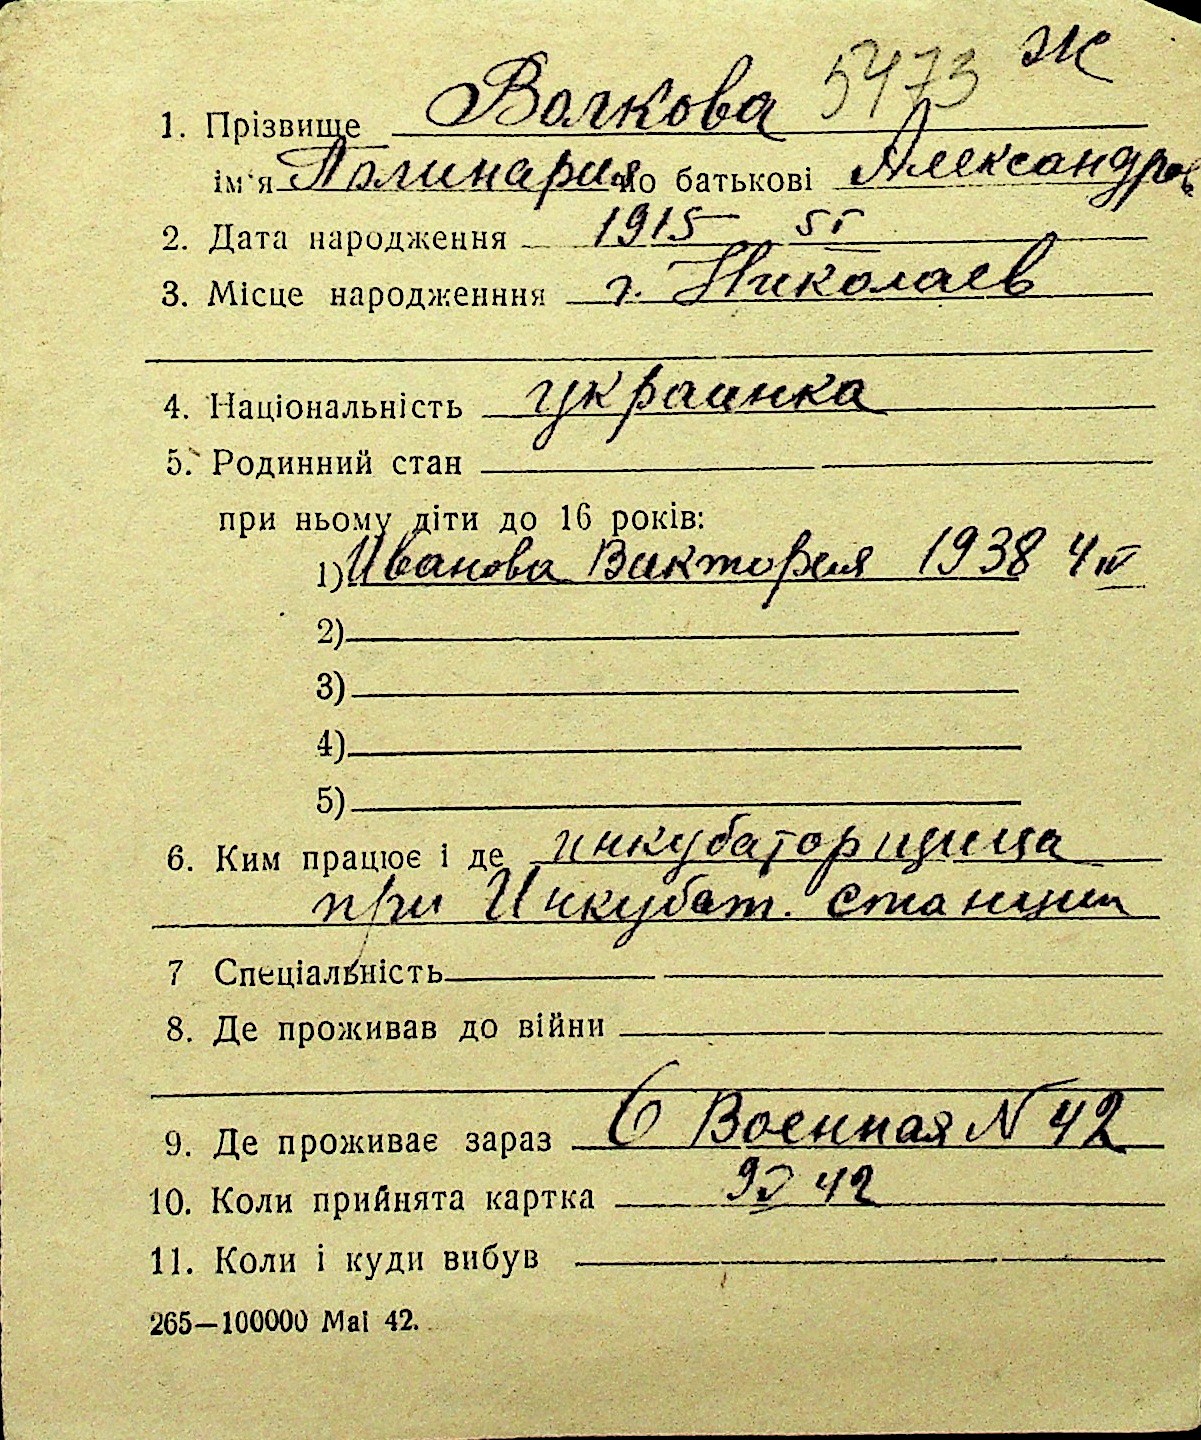 5473 Ж
1. Прізвище Волкова
ім'я Полинария по батькові Александров
2. Дата народження 1915 5 I
3. Місце народженння г. Николаев
4. Національність украинка
5. Родинний стан
при ньому діти до 16 років:
1) Иванова Виктория 1938 4 IV
2)
3)
4)
5)
6. Ким працює і де инкубаторщица
при Инкубат. станции
7 Спеціальність
8. Де проживав до війни
9. Де проживає зараз 6 Военная N 42
10. Коли прийнята картка 42
11. Коли і куди вибув
265—100000 Mai 42.